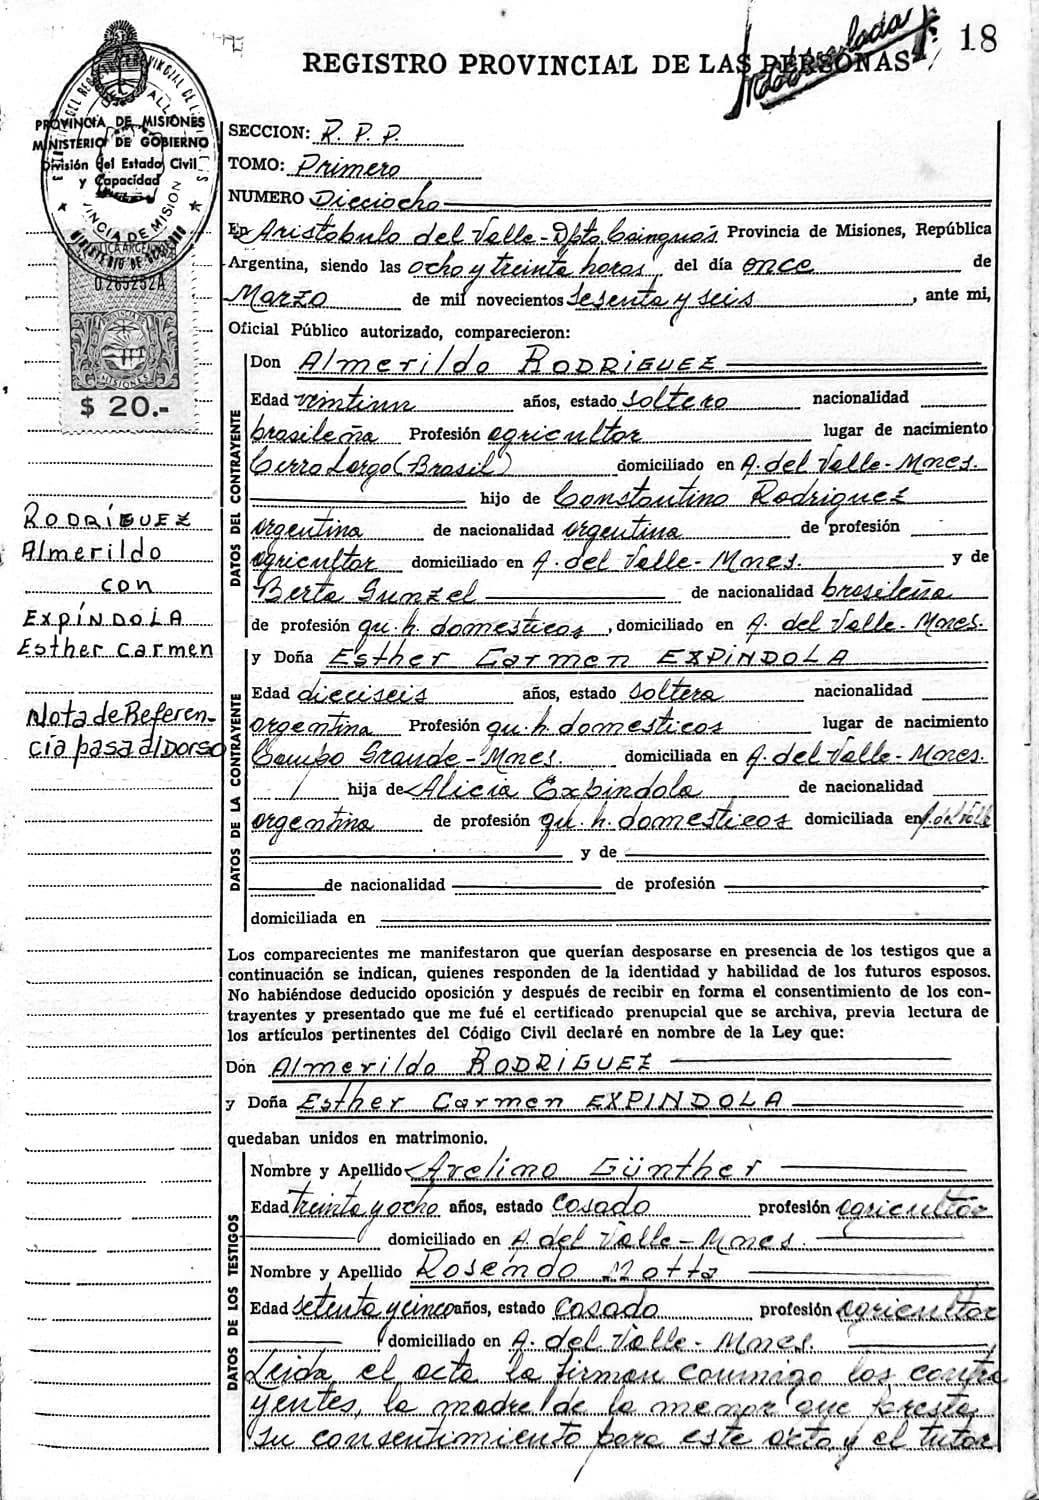 18
REGISTRO PROVINCIAL DE LAS PERSONAS
PROVINCIA DE MISIONES
MINISTERIO DE GOBIERNO
División del Estado Civil
y Capacidad
0265252A
MISIONES
$ 20.-
RODRÍGUEZ
Almerildo
con
EXPÍNDOLA
Esther Carmen
Nota de Referen-
cia pasa al Dorso
SECCION: R. P. P.
TOMO: Primero
NUMERO Dieciocho
En Aristobulo del Valle - Dpto Cainguás Provincia de Misiones, República
Argentina, siendo las ocho y treinta horas, del día once de
Marzo de mil novecientos sesenta y seis, ante mi,
Oficial Público autorizado, comparecieron:
DATOS DEL CONTRAYENTE
Don Almerildo RODRIGUEZ
Edad veintiun años, estado soltero nacionalidad
brasileña Profesión agricultor lugar de nacimiento
Cerro Largo (Brasil) domiciliado en A. del Valle - Mnes.
hijo de Constantino Rodriguez
argentina de nacionalidad argentina de profesión
agricultor domiciliado en A. del Valle - Mnes. y de
Berta Gunzel de nacionalidad brasileña
de profesión qu. h. domesticos, domiciliado en A. del Valle - Mnes.
DATOS DE LA CONTRAYENTE
y Doña Esther Carmen EXPINDOLA
Edad dieciseis años, estado soltera nacionalidad
argentina Profesión qu. h. domesticos lugar de nacimiento
Campo Grande - Mnes. domiciliada en A. del Valle - Mnes.
hija de Alicia Expindola de nacionalidad
argentina de profesión qu. h. domesticos domiciliada en A. del Valle
y de
de nacionalidad de profesión
domiciliada en
Los comparecientes me manifestaron que querían desposarse en presencia de los testigos que a
continuación se indican, quienes responden de la identidad y habilidad de los futuros esposos.
No habiéndose deducido oposición y después de recibir en forma el consentimiento de los con-
trayentes y presentado que me fué el certificado prenupcial que se archiva, previa lectura de
los artículos pertinentes del Código Civil declaré en nombre de la Ley que:
Don Almerildo RODRIGUEZ
y Doña Esther Carmen EXPINDOLA
quedaban unidos en matrimonio.
DATOS DE LOS TESTIGOS
Nombre y Apellido Avelino Günther
Edad treinta y ocho años, estado casado profesión agricultor
domiciliado en A. del Valle - Mnes.
Nombre y Apellido Rosendo Motta
Edad setenta y cinco años, estado casado profesión agricultor
domiciliado en A. del Valle - Mnes.
Leida el acta la firman conmigo los contra
yentes, la madre de la menor que presta
su consentimiento para este acto y el tutor